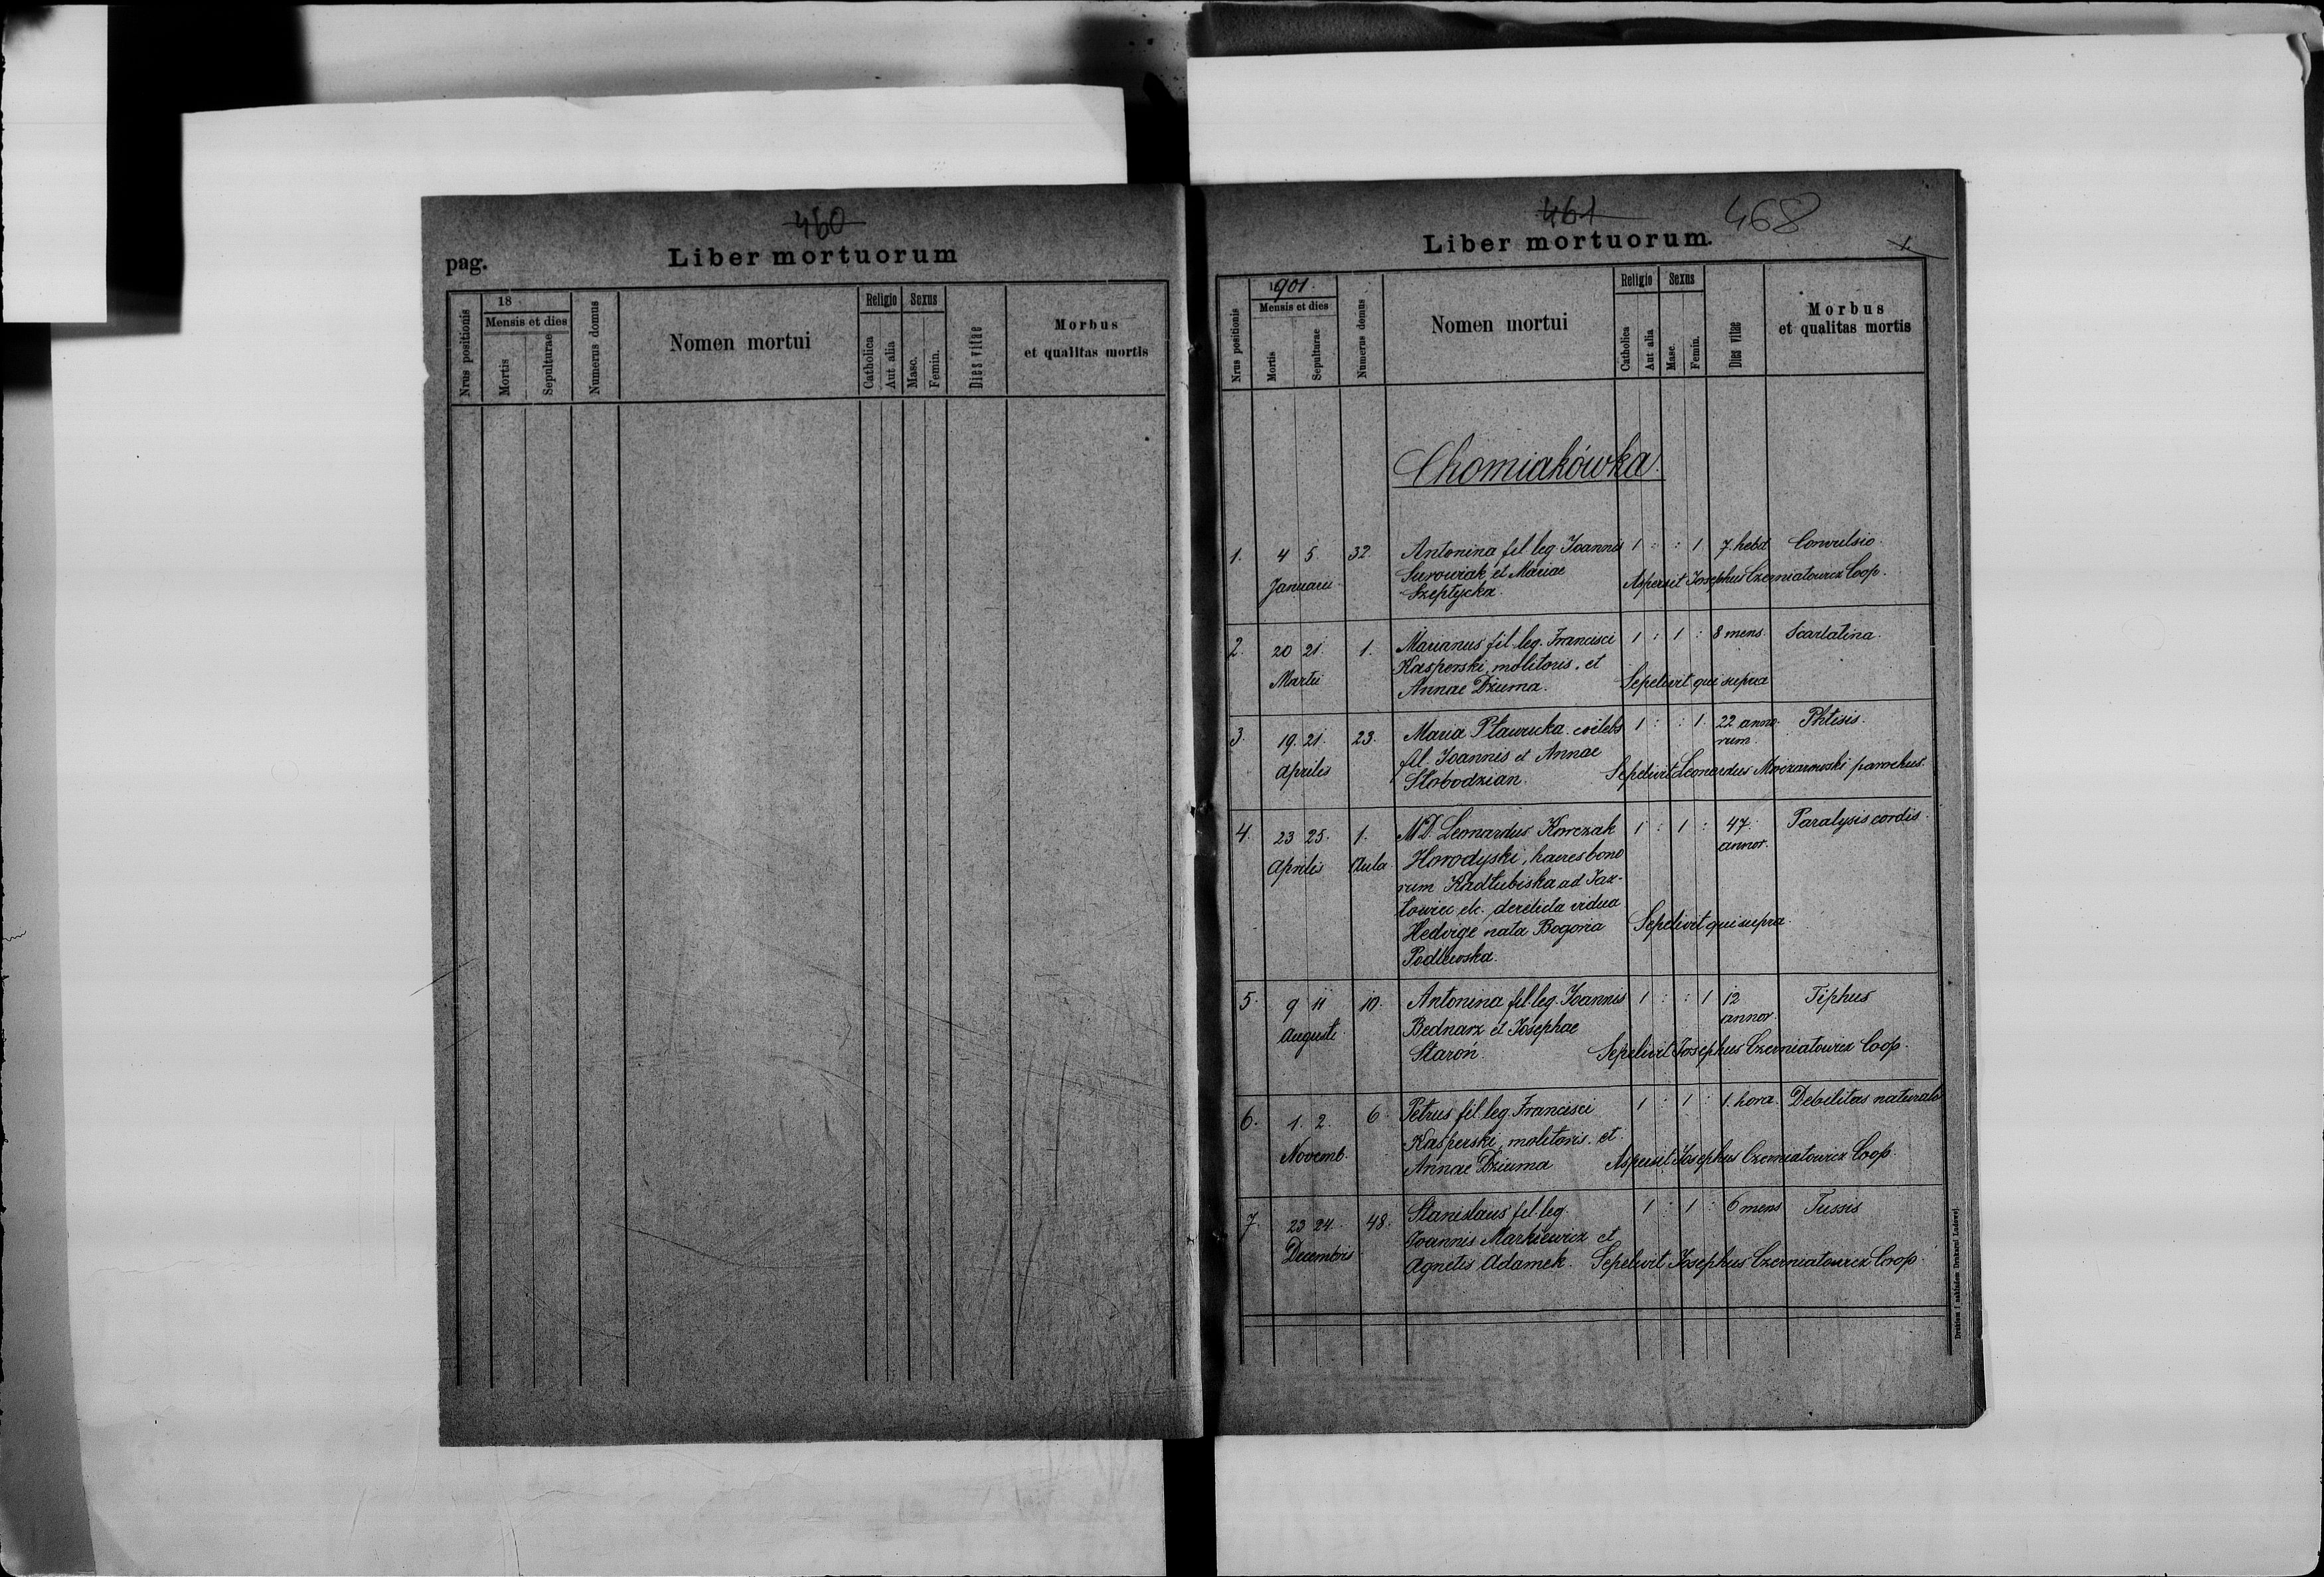 460
pag. Liber mortuorum
Nrus positionis
18
Mensis et dies
Mortis
Sepulturae
Numerus domus
Nomen mortui
Religio
Catholica
Aut alia
Sexus
Masc.
Femin.
Dies vitae
Morbus
et qualitas mortis
461 468
Liber mortuorum.
1
Nrus positionis
1901.
Mensis et dies
Mortis
Sepulturae
Numerus domus
Nomen mortui
Religio
Catholica
Aut alia
Sexus
Masc.
Femin.
Dies vitae
Morbus
et qualitas mortis
Chomiakówka.
1. 4 5. 32. Antonina fil. leg. Joannis 1 : : 1 7. hebd. Convulsio.
Januarii Surowiak et Mariae
Szeptycka. Aspersit Josephus Czerniatowicz Coop.
2. 20 21. 1. Marianus fil. leg. Francisci 1 : 1 : 8 mens. Scarlatina.
Martii Kasperski, molitoris, et
Annae Dziuma. Sepelivit qui supra
3. 19. 21. 23. Maria Pławucka coelebs 1 : : 1. 22 anno-
rum. Phtisis.
Aprilis fil. Joannis et Annae
Słobodzian. Sepelivit Leonardus Moczarowski parochus.
4. 23 25. 1. MD. Leonardus Korczak 1 : 1 : 47. Paralysis cordis.
annor.
Aprilis Aula Horodyski, haeres bono
rum Kadłubiska ad Jaz-
łowiec etc. derelicta vidua
Hedvige nata Bogoria Sepelivit qui supra.
Podlewska.
5. 9 11 10. Antonina fil. leg. Joannis 1 : : 1 12 Tiphus
annor.
Augusti Bednarz et Josephae
Staroń. Sepelivit Josephus Czerniatowicz Coop.
6. 1. 2. 6. Petrus fil. leg. Francisci 1 : 1 : 1. hora. Debilitas naturalis
Novemb. Kasperski, molitoris. et
Annae Dziuma Aspersit Josephus Czerniatowicz Coop.
7. 23 24. 48. Stanislaus fil. leg. 1 : 1 : 6 mens Tussis
Decembris Joannis Markiewicz et
Agnetis Adamek. Sepelivit Josephus Czerniatowicz Coop.
Drukiem i nakładem Drukarni Ludowej